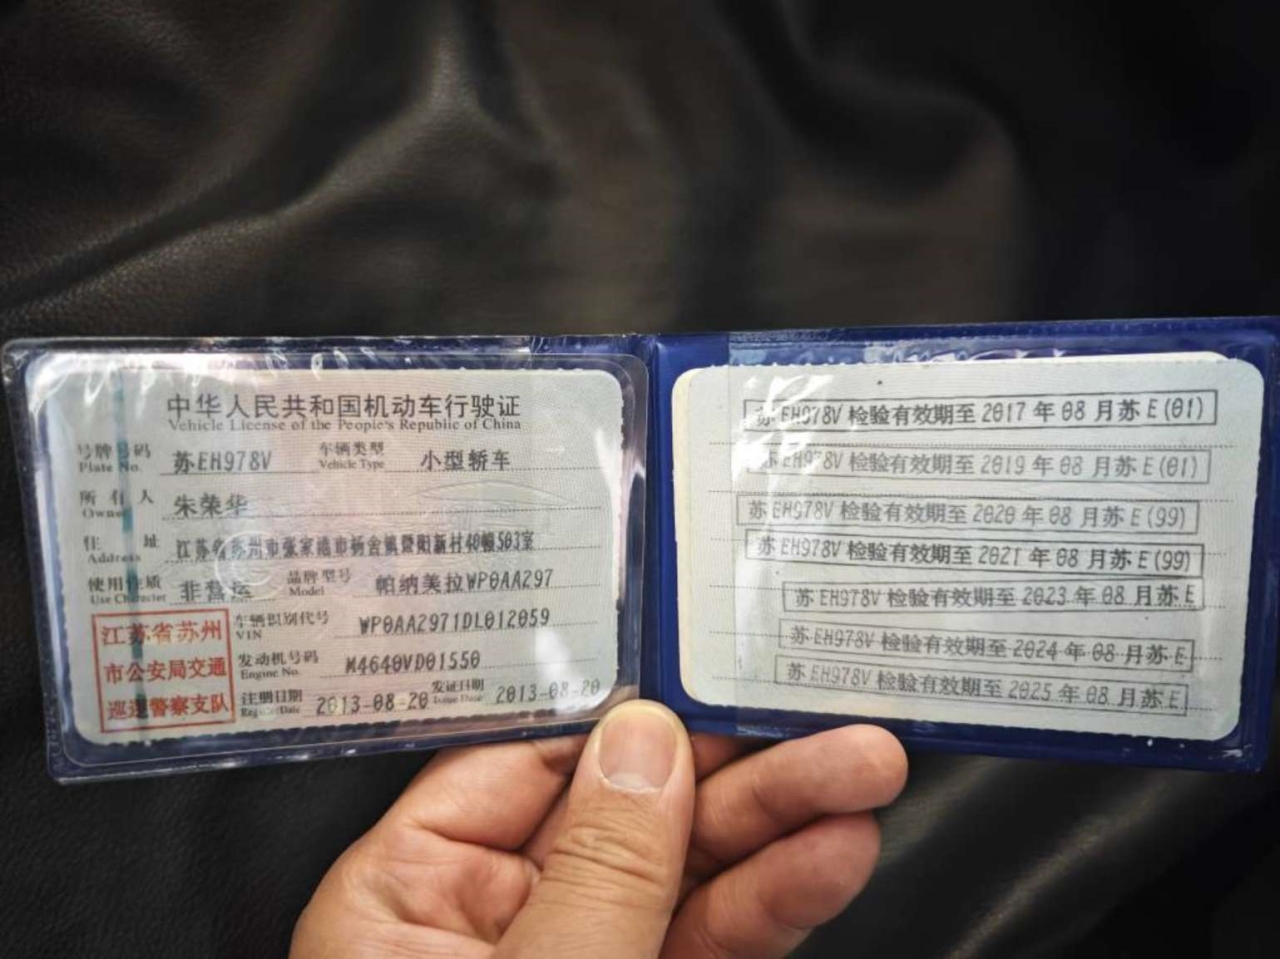 中华人民共和国机动车行驶证
Vehicle License of the People's Republic of China
号牌号码 苏EH978V 车辆类型 小型轿车
Plate No. Vehicle Type
所有人 朱荣华
Owner
住址 江苏省苏州市张家港市杨舍镇暨阳新村40幢503室
Address
使用性质 非营运 品牌型号 帕纳美拉WP0AA297
Use Character Model
车辆识别代号 WP0AA2971DL012059
VIN
发动机号码 M4640VD01550
Engine No.
注册日期 2013-08-20 发证日期 2013-08-20
Register Date Issue Date
江苏省苏州
市公安局交通
巡逻警察支队
苏EH978V 检验有效期至 2017 年 08 月苏 E (01)
苏EH978V 检验有效期至 2019 年 08 月苏 E (01)
苏EH978V 检验有效期至 2020 年 08 月苏 E (99)
苏EH978V 检验有效期至 2021 年 08 月苏 E (99)
苏EH978V 检验有效期至 2023 年 08 月苏 E
苏EH978V 检验有效期至 2024 年 08 月苏 E
苏EH978V 检验有效期至 2025 年 08 月苏 E